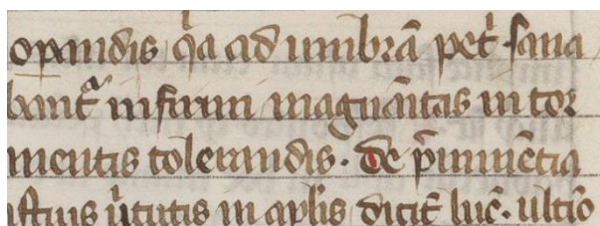 oꝑandis q̃a ad umbrã pet᷑. sana
bant᷑ infirmi magnãitas in tor
mentis tolerandis. de p̃minẽtia
istius v̾tutis in apl̃is dicit᷑ luc̃. ultĩo